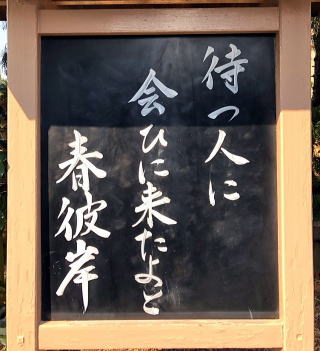 待つ人に
会ひに来たよと
春彼岸